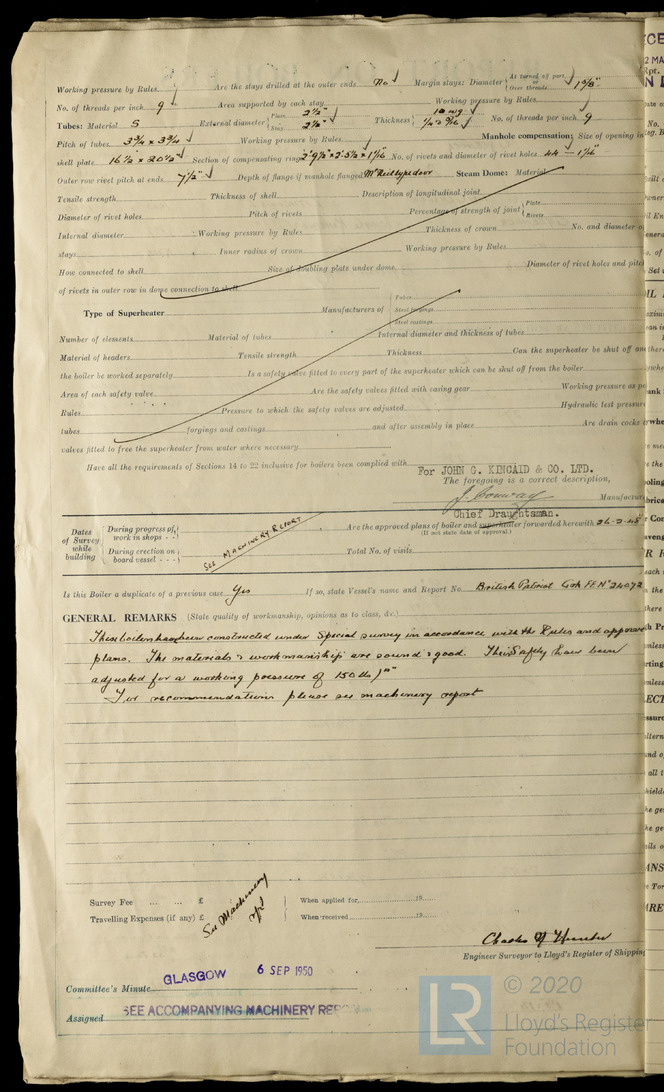 Working pressure by Rules Are the stays drilled at the outer ends No Margin stays: Diameter { As turned off part, or Over threads 1 5/8"
No. of threads per inch 9 Area supported by each stay Working pressure by Rules
Tubes: Material S External diameter { Plain 2½" Stay 2½" Thickness { 10 WG ¼ & 5/16 No. of threads per inch 9
Pitch of tubes 3¾ x 3¾ Working pressure by Rules Manhole compensation: Size of opening in
shell plate 16½ x 20½" Section of compensating ring No. of rivets and diameter of rivet holes 44 – 1 1/16"
Outer row rivet pitch at ends 7½" Depth of flange if manhole flanged McNeil type door Steam Dome: Material
Tensile strength Thickness of shell Description of longitudinal joint
Diameter of rivet holes Pitch of rivets Percentage of strength of joint { Plate Rivets
Internal diameter Working pressure by Rules Thickness of crown No. and diameter of
stays Inner radius of crown Working pressure by Rules
How connected to shell Size of doubling plate under dome Diameter of rivet holes and pitch
of rivets in outer row in dome connection to shell
Type of Superheater Manufacturers of { Tubes Steel forgings Steel castings
Number of elements Material of tubes Internal diameter and thickness of tubes
Material of headers Tensile strength Thickness Can the superheater be shut off and
the boiler be worked separately Is a safety valve fitted to every part of the superheater which can be shut off from the boiler
Area of each safety valve Are the safety valves fitted with easing gear Working pressure as per
Rules Pressure to which the safety valves are adjusted Hydraulic test pressure
tubes forgings and castings and after assembly in place Are drain cocks or
valves fitted to free the superheater from water where necessary
Have all the requirements of Sections 14 to 22 inclusive for boilers been complied with
For JOHN G. KINCAID & CO. LTD.
The foregoing is a correct description,
J. Conway Manufacturer
Chief Draughtsman.
Dates of Survey while building { During progress of work in shops - - { During erection on board vessel - - -
SEE MACHINERY REPORT
Are the approved plans of boiler and superheater forwarded herewith 26-2-45
(If not state date of approval.)
Total No. of visits
Is this Boiler a duplicate of a previous case Yes If so, state Vessel's name and Report No. British Patriot Gok FE No 24072
GENERAL REMARKS (State quality of workmanship, opinions as to class, &c.)
These boilers have been constructed under Special survey in accordance with the Rules and approved
plans. The materials & workmanship are sound & good. Their Safety have been
adjusted for a working pressure of 150 lb/□"
For recommendations please see machinery report
Survey Fee ... ... £ When applied for, 19
Travelling Expenses (if any) £ When received, 19
See Machinery rpt
Charles Hunter
Engineer Surveyor to Lloyd's Register of Shipping
Committee's Minute GLASGOW 6 SEP 1950
Assigned SEE ACCOMPANYING MACHINERY REPORT
LR
© 2020
Lloyd's Register
Foundation